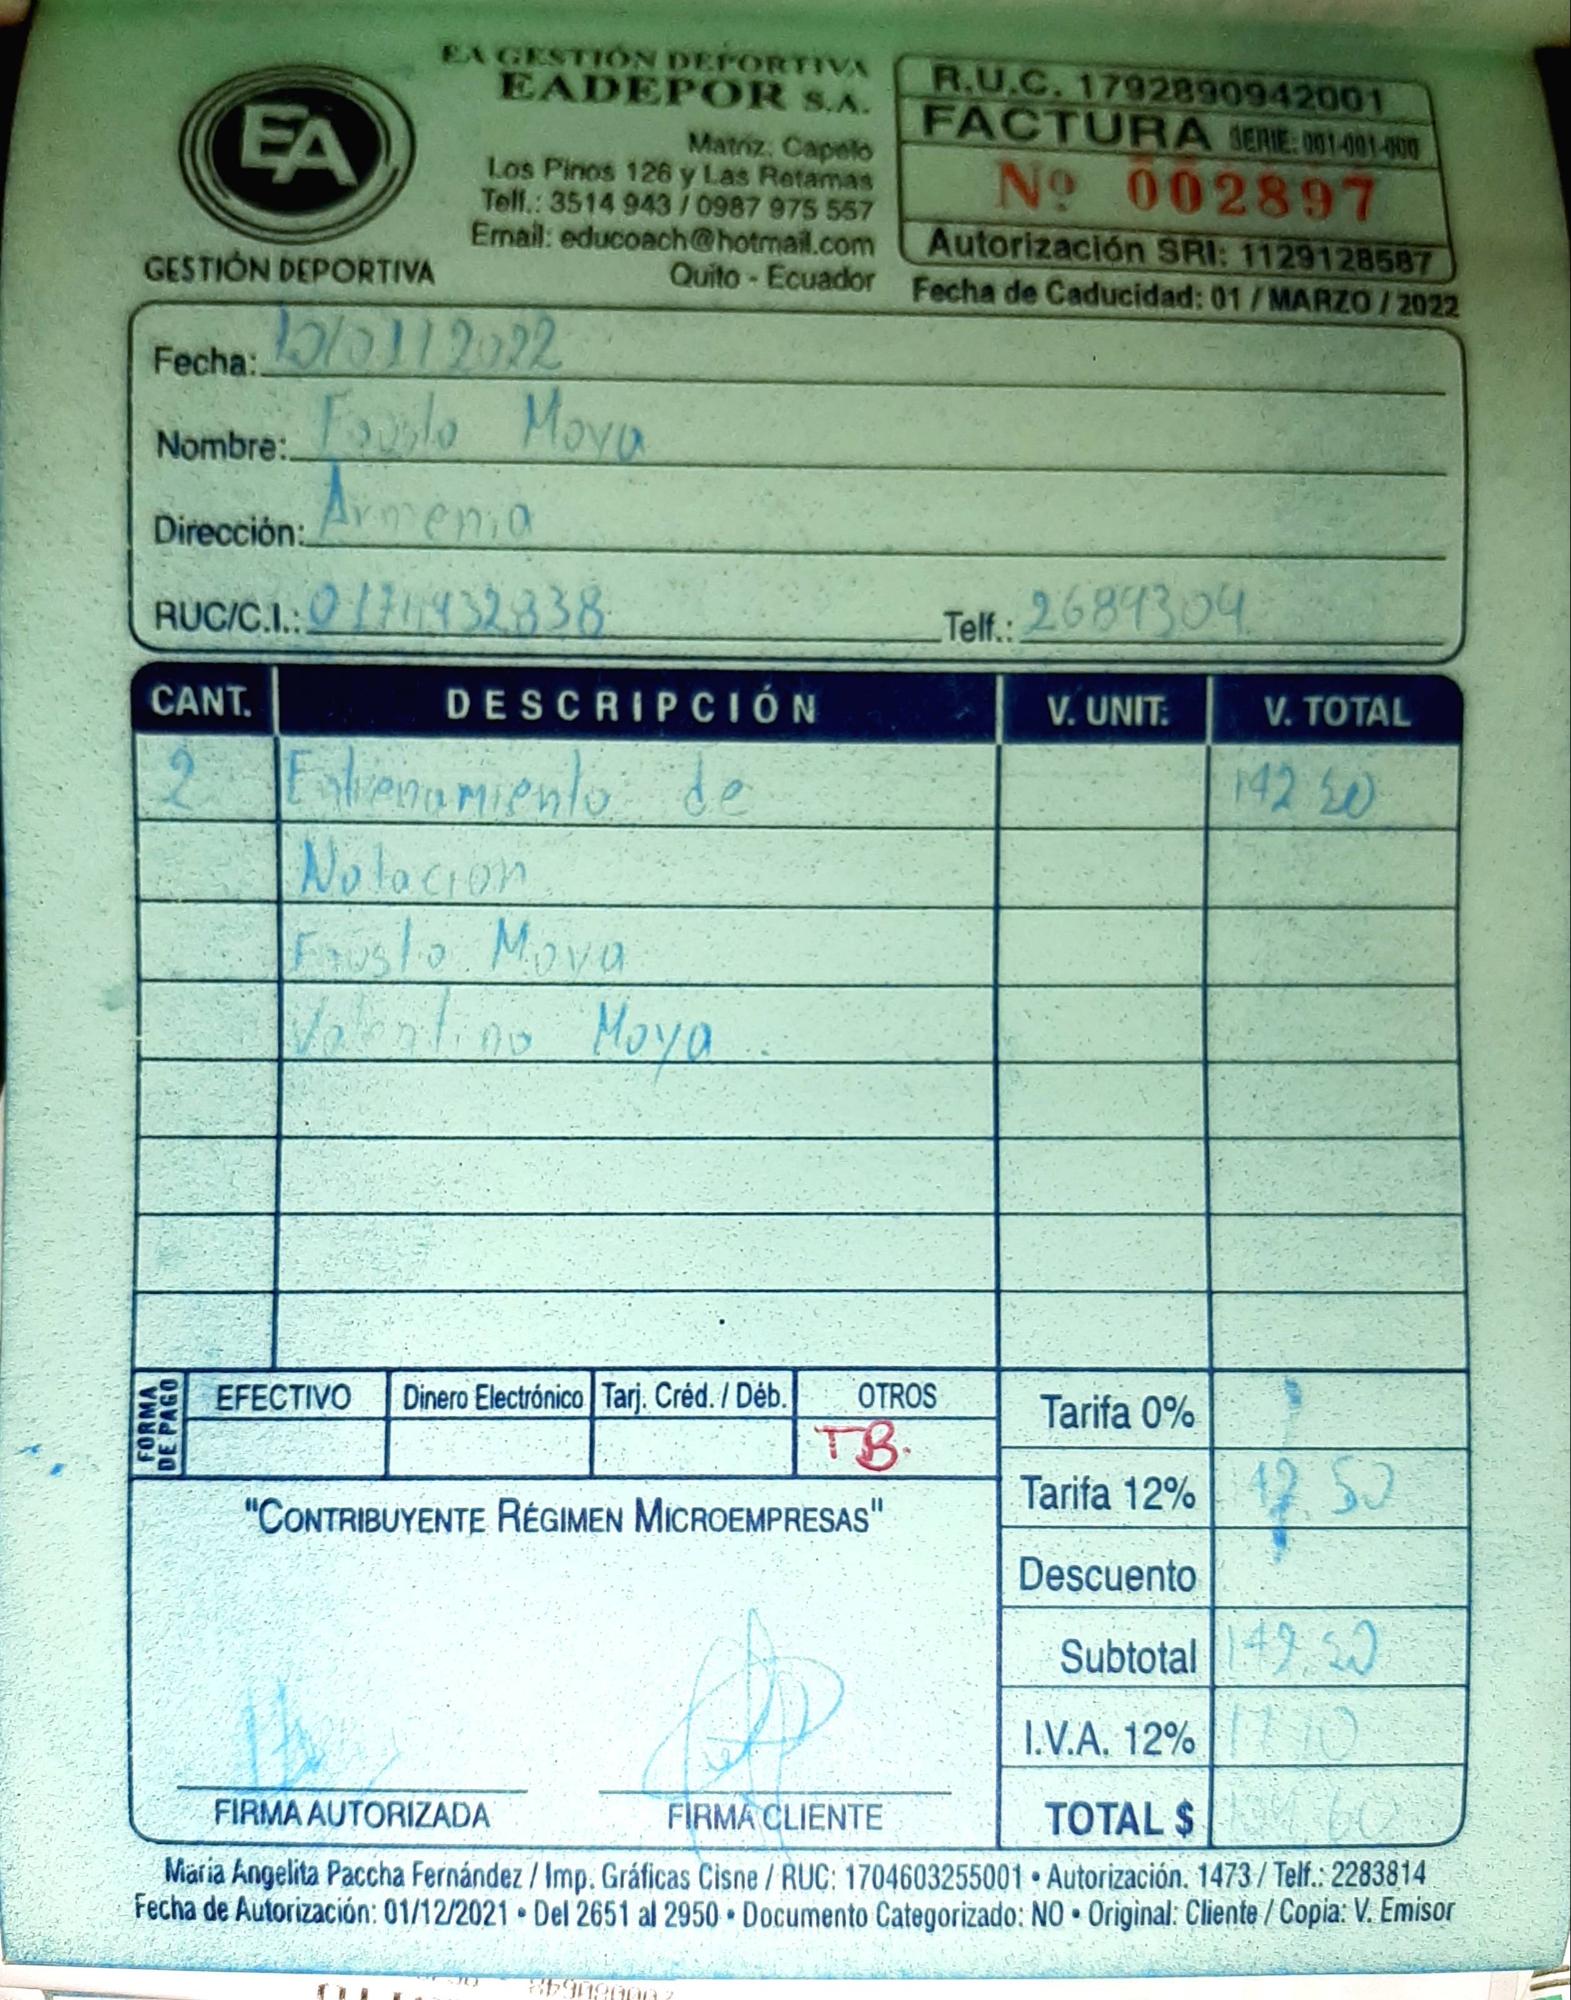 EA GESTIÓN DEPORTIVA
EADEPOR S.A.
EA
GESTIÓN DEPORTIVA
Matriz: Capelo
Los Pinos 126 y Las Retamas
Telf.: 3514 943 / 0987 975 557
Email: educoach@hotmail.com
Quito - Ecuador
R.U.C. 1792890942001
FACTURA SERIE: 001-001-000
Nº 002897
Autorización SRI: 1129128587
Fecha de Caducidad: 01 / MARZO / 2022
Fecha: 10/01/2022
Nombre: Fausto Moya
Dirección: Armenia
RUC/C.I.: Telf.: 2689304
CANT. DESCRIPCIÓN V. UNIT. V. TOTAL
2 Entrenamiento de 142 50
Natacion
Fausto Moya
Valentino Moya
FORMA DE PAGO
EFECTIVO Dinero Electrónico Tarj. Créd. / Déb. OTROS
TB.
Tarifa 0%
Tarifa 12% 142.50
Descuento
Subtotal 142.50
I.V.A. 12% 17.10
TOTAL $
"CONTRIBUYENTE RÉGIMEN MICROEMPRESAS"
FIRMA AUTORIZADA FIRMA CLIENTE
Maria Angelita Paccha Fernández / Imp. Gráficas Cisne / RUC: 1704603255001 • Autorización. 1473 / Telf.: 2283814
Fecha de Autorización: 01/12/2021 • Del 2651 al 2950 • Documento Categorizado: NO • Original: Cliente / Copia: V. Emisor